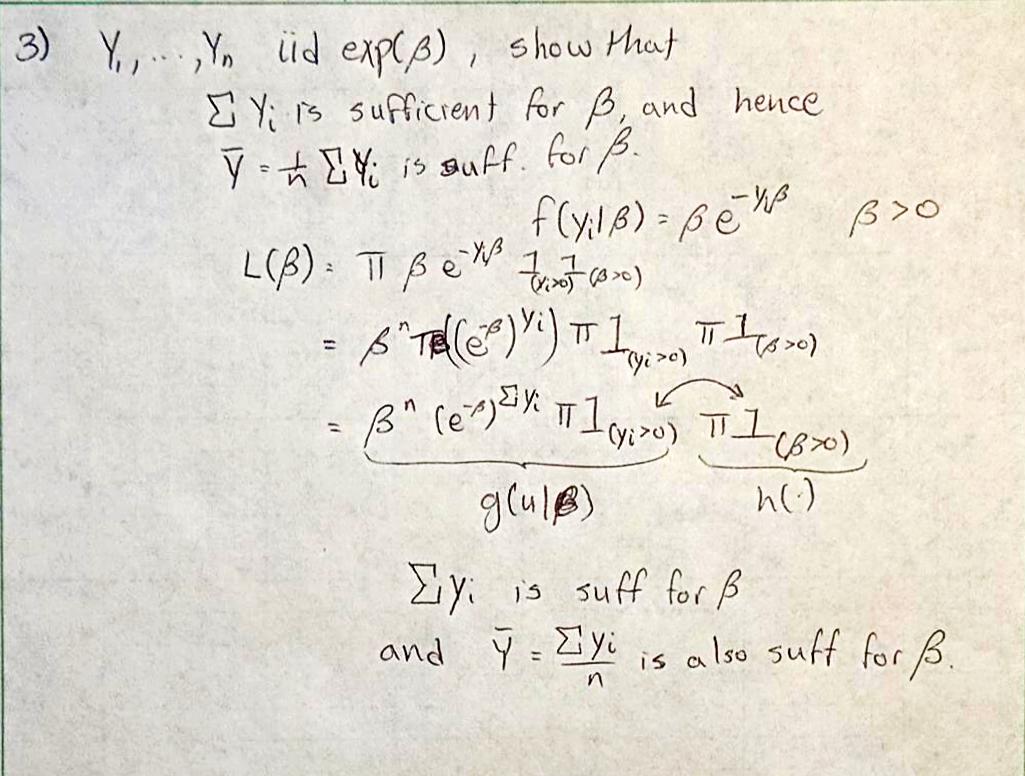 3) Y₁, ..., Yₙ iid exp(β), show that
Σ Yᵢ is sufficient for β, and hence
Ȳ = 1/n Σ Yᵢ is suff. for β.
f(yᵢ|β) = β e^(-yᵢβ) β > 0
L(β) = π β e^(-yᵢβ) 1_(yᵢ>0) 1_(β>0)
= βⁿ π((e^(-β))^(yᵢ)) π 1_(yᵢ>0) π 1_(β>0)
= βⁿ (e^(-β))^(Σyᵢ) π 1_(yᵢ>0) π 1_(β>0)
g(u|β) h(·)
Σyᵢ is suff for β
and Ȳ = Σyᵢ/n is also suff for β.